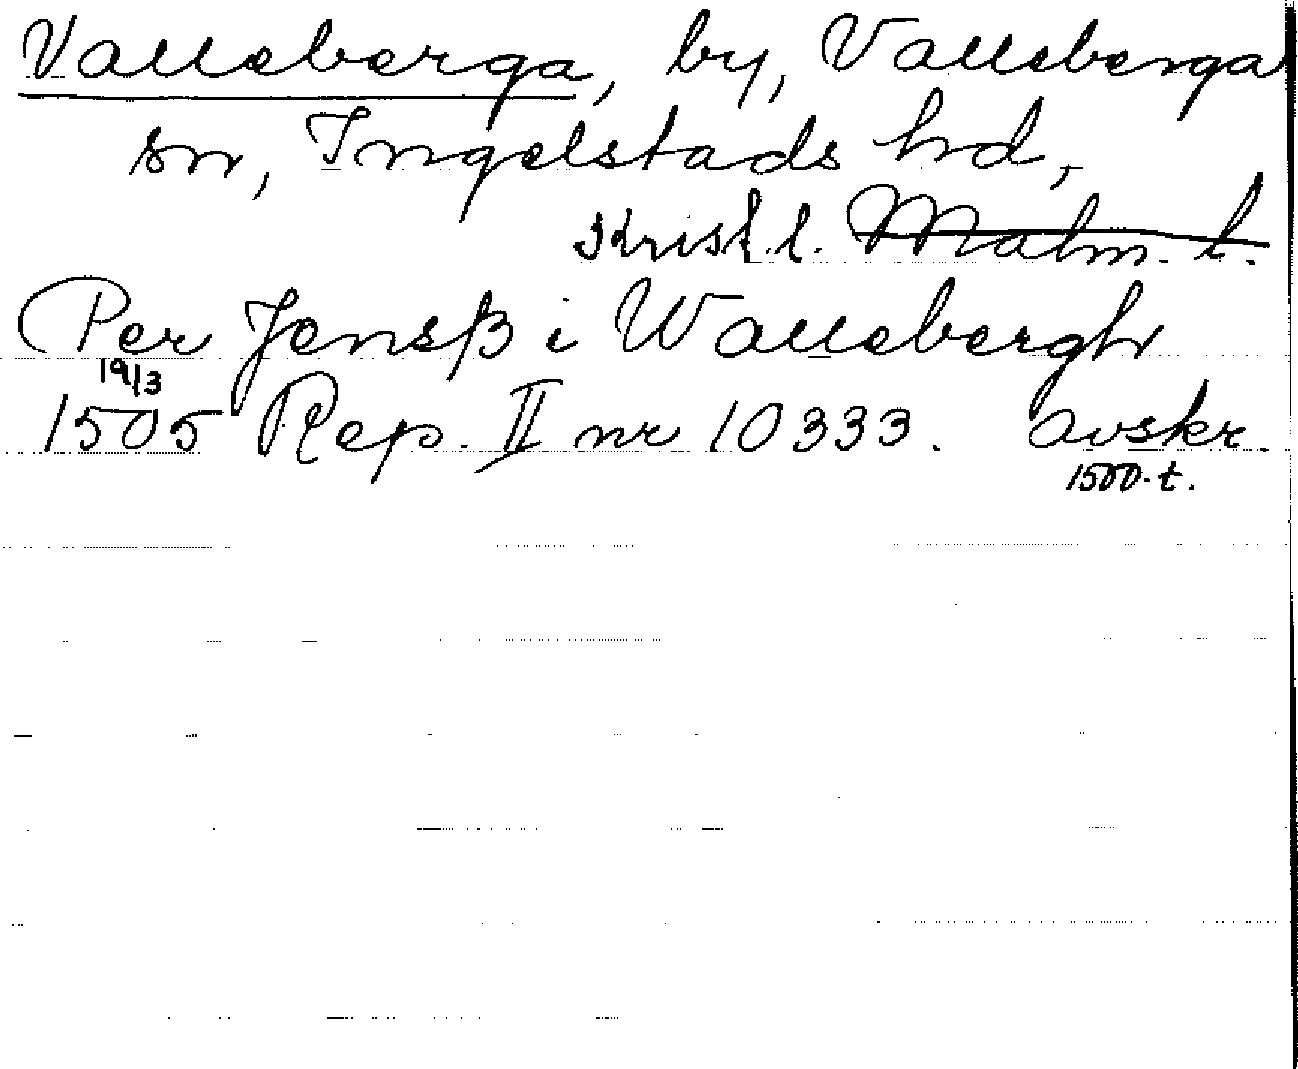 Valleberga, by, Valleberga
sn, Ingelstads hd,
Krist. l. Malm. l.
Per Jensß i Wallebergh
19/3
1505 Rep. II nr 10333. avskr.
1500-t.